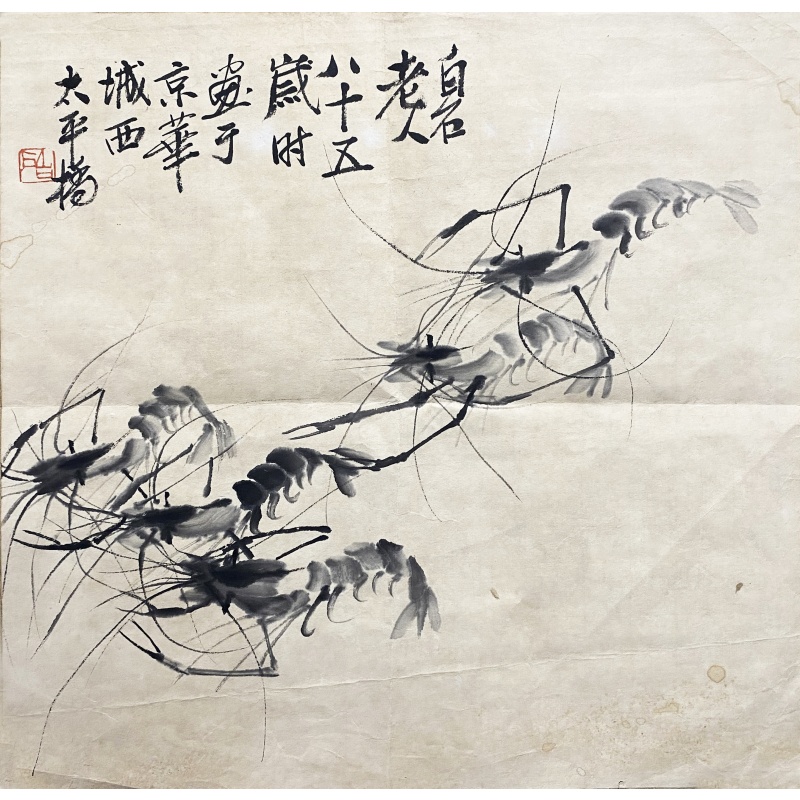 白石
老人
八十五
嵗时
画于
京華
城西
太平橋
白石